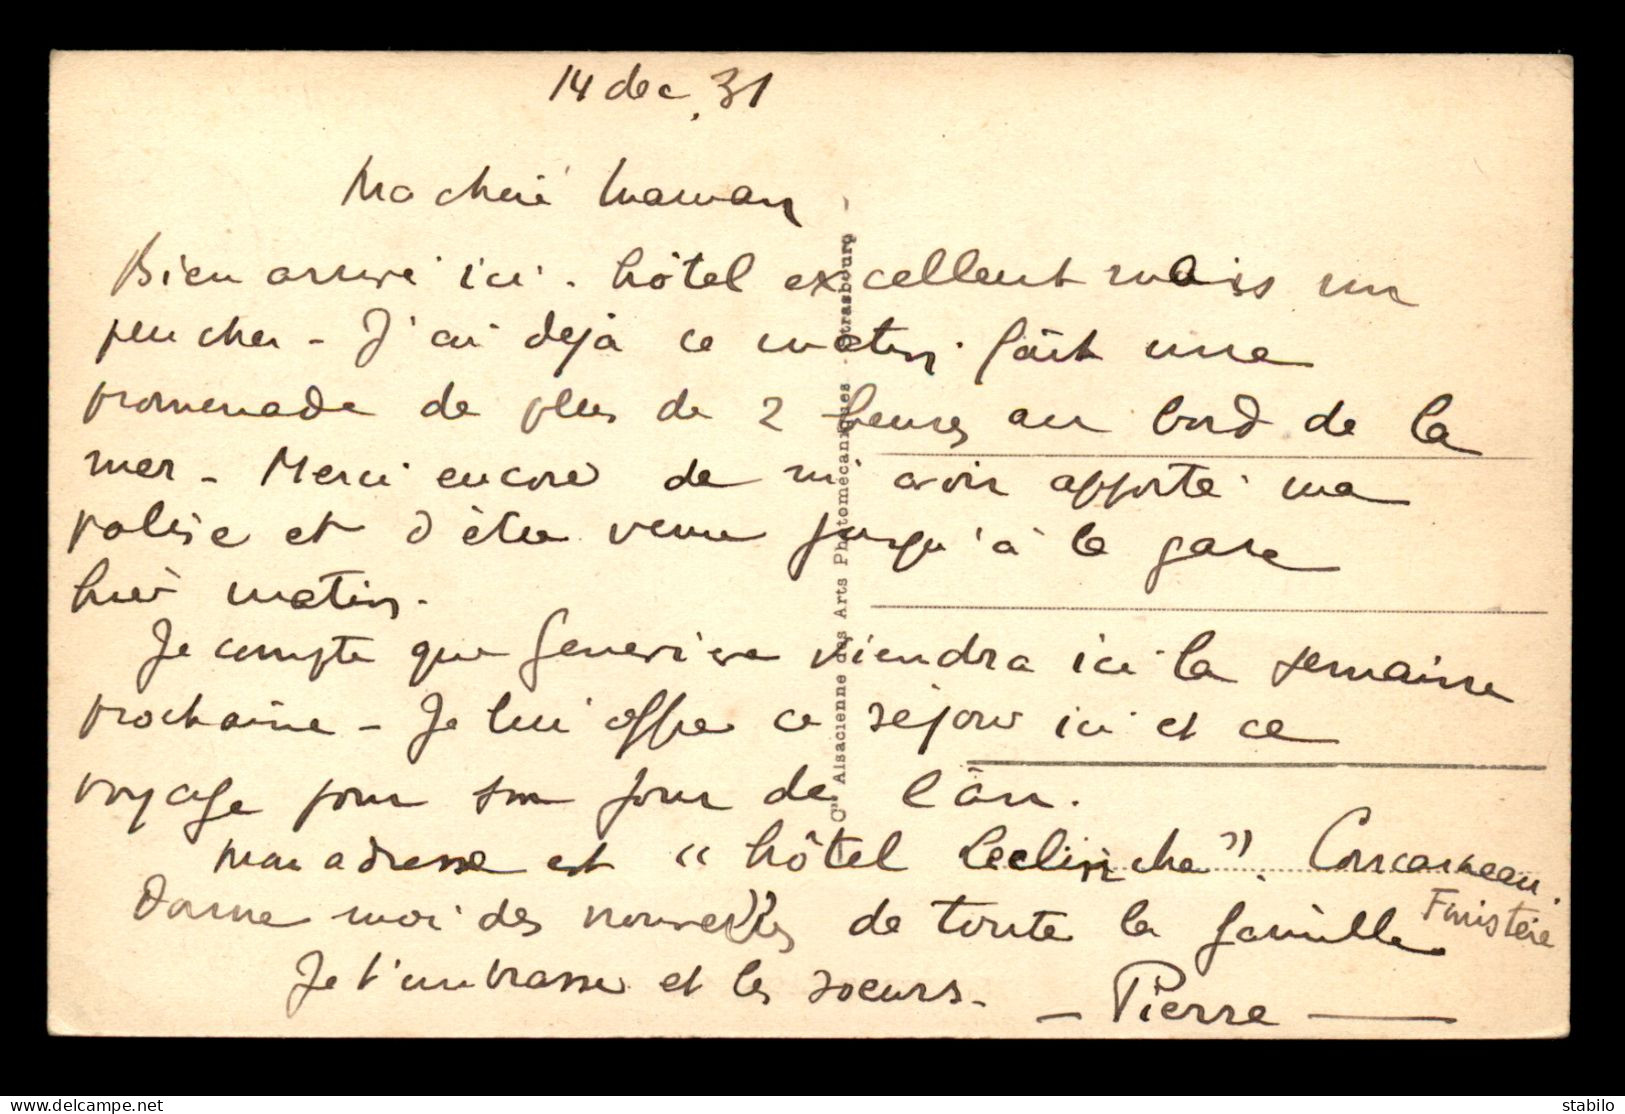 14 dec. 31
Ma chère Maman
Bien arrivé ici. hôtel excellent mais un
peu cher - J'ai dejà ce matin fait une
promenade de plus de 2 heures au bord de la
mer - Merci encore de m'avoir apporté ma
valise et d'être venu jusqu'à la gare
hier matin.
Je compte que Geneviève viendra ici la semaine
prochaine - Je lui offre ce séjour ici et ce
voyage pour son jour de l'an.
Mon adresse est "hôtel Leclinche". Concarneau.
Finistère
Donne moi des nouvelles de toute la famille
Je t'embrasse et les soeurs. - Pierre -
Cie Alsacienne des Arts Photomécaniques - Strasbourg
stabilo